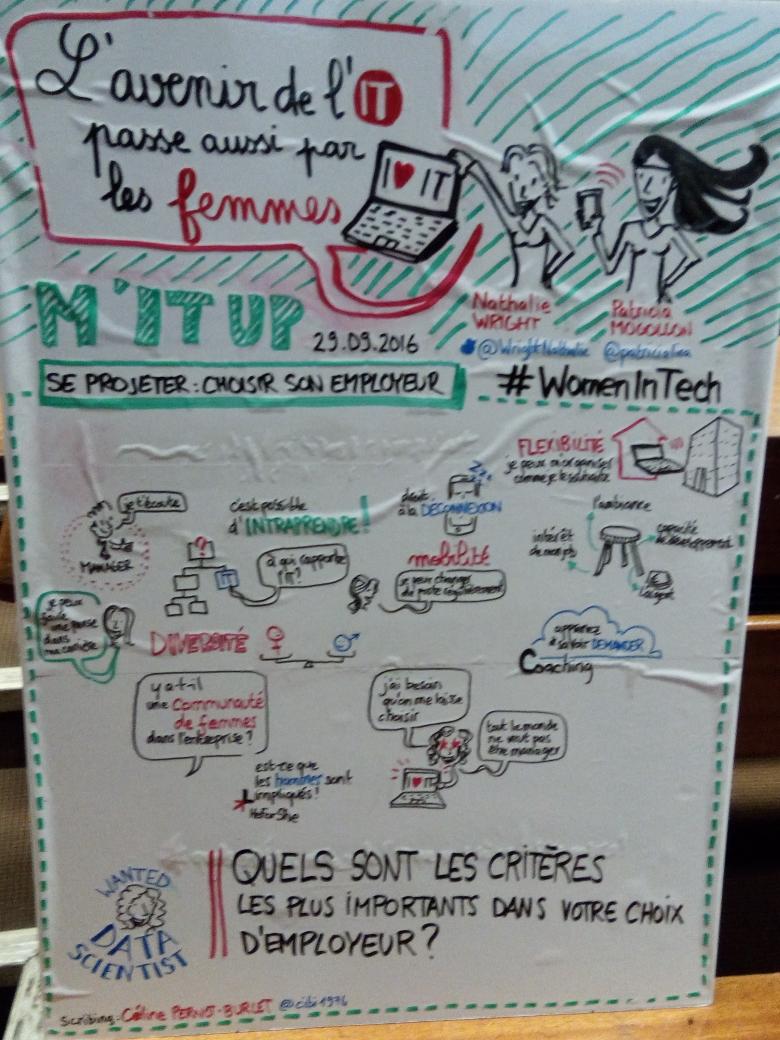 L'avenir de l'IT
passe aussi par
les femmes
I ♥ IT
M'IT UP
29.09.2016
Nathalie
WRIGHT
@WrightNathalie
Patricia
MOGOLLON
SE PROJETER : CHOISIR SON EMPLOYEUR
#WomenInTech
FLEXIBILITÉ
je peux m'organiser
comme je le souhaite
je t'écoute
MANAGER
c'est possible
d'INTRAPRENDRE !
droit
à la DÉCONNEXION
l'ambiance
intérêt
de mon job
capacité
de développement
l'argent
?
IT
à qui rapporte
l'IT?
mobilité
je peux changer
de poste régulièrement
je peux
faire
une pause
dans
ma carrière
DIVERSITÉ
apprenez
à savoir DEMANDER
Coaching
y a t-il
une Communauté
de femmes
dans l'entreprise ?
j'ai besoin
qu'on me laisse
choisir
tout le monde
ne veut pas
être manager
I ♥ IT
est-ce que
les hommes sont
impliqués !
HeForShe
WANTED
DATA
SCIENTIST
QUELS SONT LES CRITÈRES
LES PLUS IMPORTANTS DANS VOTRE CHOIX
D'EMPLOYEUR ?
Scribing: Céline PERNOT-BURLET @cibi1976